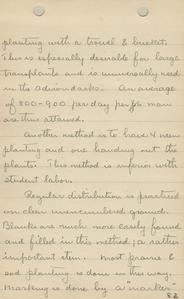 planting with a trowel & bucket.
This is especially desirable for large
transplants and is universally used
in the Adirondacks. An average
of 800-900 per day per man
are thus attained.
Another method is to have 4 men
planting and one handing out the
plants. This method is inferior with
student labor.
Regular distribution is practiced
on clear unencumbered ground.
Blanks are much more easily found
and filled in this method; a rather
important item. Most prairie &
sod planting is done in this way.
Marking is done by a "marker"
82